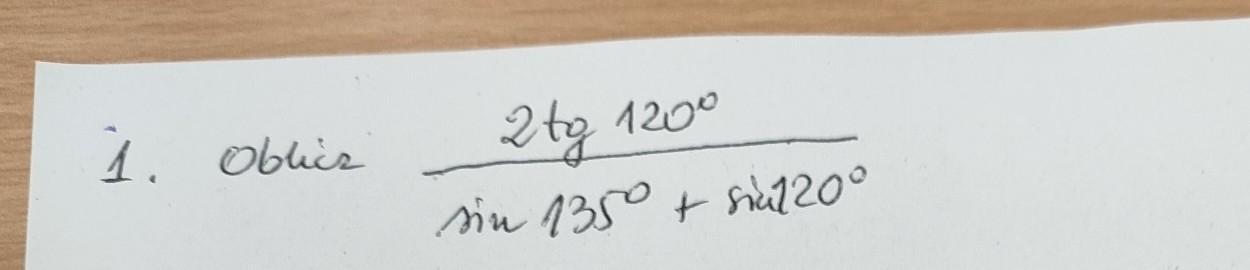 1. Oblicz 2tg 120° / sin 135° + sin120°